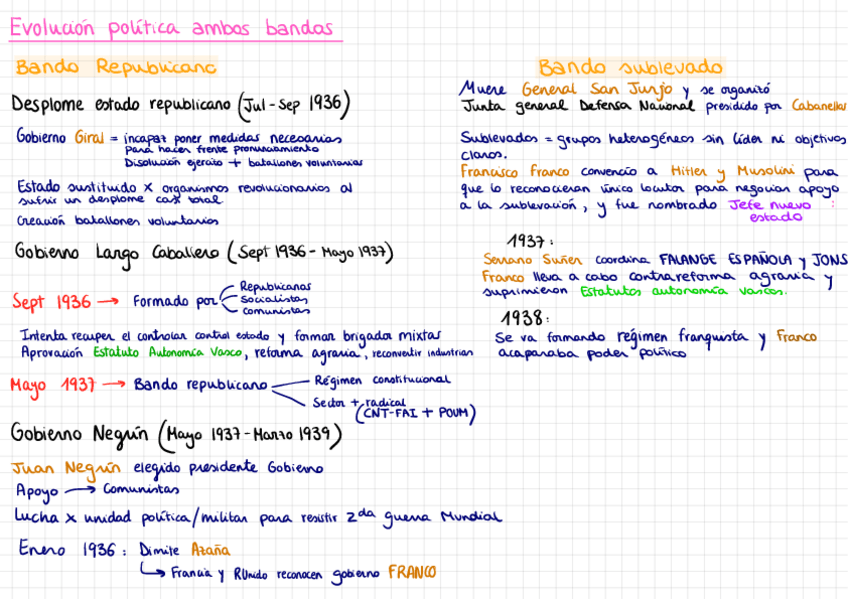 Evolución política ambos bandos
Bando Republicano
Desplome estado republicano (Jul-Sep 1936)
Gobierno Giral = incapaz poner medidas necesarias
para hacer frente pronunciamiento
Disolución ejercito + batallones voluntarios
Estado sustituido x organismos revolucionarios al
sufrir un desplome casi total
Creación batallones voluntarios
Gobierno Largo Caballero (Sept 1936 - Mayo 1937)
Sept 1936 → Formado por
Republicanos
Socialistas
comunistas
Intenta recuper el controlar control estado y formar brigadas mixtas
Aprovación Estatuto Autonomía Vasco, reforma agraria, reconvertir industrias
Mayo 1937 → Bando republicano
Régimen constitucional
Sector + radical
(CNT-FAI + POUM)
Gobierno Negrín (Mayo 1937 - Marzo 1939)
Juan Negrín elegido presidente Gobierno
Apoyo → Comunistas
Lucha x unidad política/militar para resistir 2da guerra Mundial
Enero 1936: Dimite Azaña
↳ Francia y RUnido reconocen gobierno FRANCO
Bando sublevado
Muere General San Jurjo y se organizó
Junta general Defensa Nacional presidido por Cabanellas
Sublevados = grupos heterogéneos sin líder ni objetivos
claros.
Francisco Franco convenció a Hitler y Musolini para
que lo reconocieran único locutor para negociar apoyo
a la sublevación, y fue nombrado Jefe nuevo
estado
1937:
Serrano Suñer coordina FALANGE ESPAÑOLA y JONS
Franco lleva a cabo contrareforma agraria y
suprimieron Estatutos autonomía vascos.
1938:
Se va formando régimen franquista y Franco
acaparaba poder político